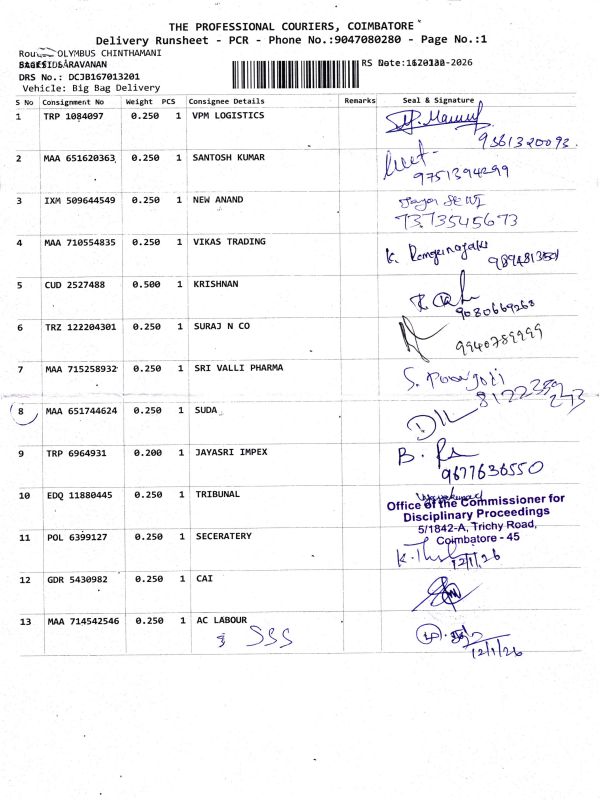 THE PROFESSIONAL COURIERS, COIMBATORE
Delivery Runsheet - PCR - Phone No.:9047080280 - Page No.:1
OLYMBUS CHINTHAMANI
SARAVANAN
RS Date: -2026
DRS No.: DCJB167013201
Vehicle: Big Bag Delivery
S No Consignment No Weight PCS Consignee Details Remarks Seal & Signature
1 TRP 1084097 0.250 1 VPM LOGISTICS
9361320093.
2 MAA 651620363 0.250 1 SANTOSH KUMAR
9751394299
3 IXM 509644549 0.250 1 NEW ANAND
7373545673
4 MAA 710554835 0.250 1 VIKAS TRADING
K.
5 CUD 2527488 0.500 1 KRISHNAN
9080669268
6 TRZ 122204301 0.250 1 SURAJ N CO
9940789999
7 MAA 715258932 0.250 1 SRI VALLI PHARMA
S.
8 MAA 651744624 0.250 1 SUDA
9 TRP 6964931 0.200 1 JAYASRI IMPEX
B.
9677636550
10 EDQ 11880445 0.250 1 TRIBUNAL
Office of the Commissioner for
Disciplinary Proceedings
5/1842-A, Trichy Road,
Coimbatore - 45
11 POL 6399127 0.250 1 SECERATERY
12/1/26
12 GDR 5430982 0.250 1 CAI
13 MAA 714542546 0.250 1 AC LABOUR
SSS
12/1/26